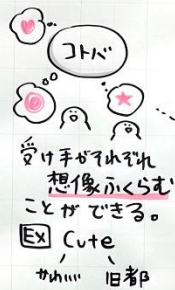 コトバ
受け手がそれぞれ
想像ふくらむ
ことができる。
Ex Cute
かわいい 旧都